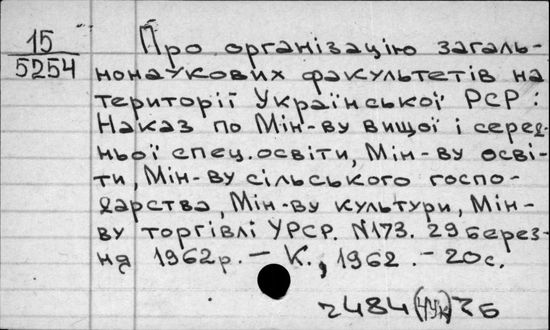 15
5254
Про організацію загаль-
нонаукових факультетів на
території Української РСР:
Наказ по Мін-ву вищої і серед-
ньої спец. освіти, Мін-ву осві-
ти, Мін-ву сільського госпо-
дарства, Мін-ву культури, Мін-
ву торгівлі УРСР. N173. 29 берез-
ня 1962р. – К., 1962. – 20с.
2484 7б